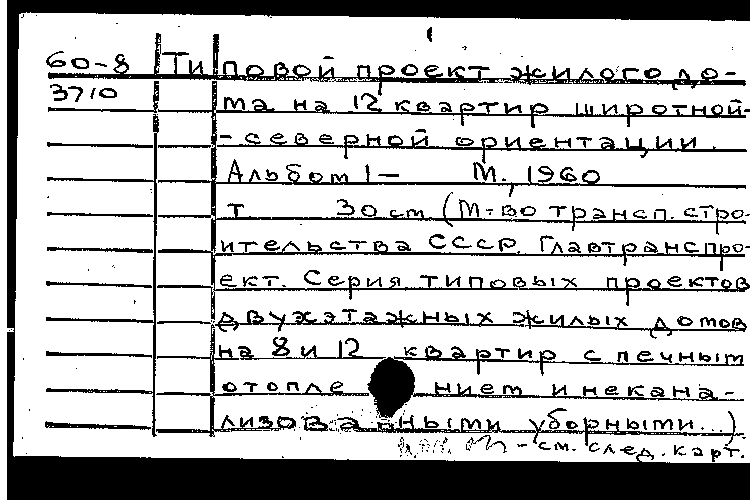 60-8 Типовой проект жилого до-
3710 ма на 12 квартир широтной-
-северной ориентации.
Альбом 1- М., 1960
т 30 см (М-во трансп. стро-
ительства СССР. Главтранспро-
ект. Серия типовых проектов
двухэтажных жилых домов
на 8 и 12 квартир с печным
отопле нием и некана-
лизованными уборными...)
-см. след. карт.